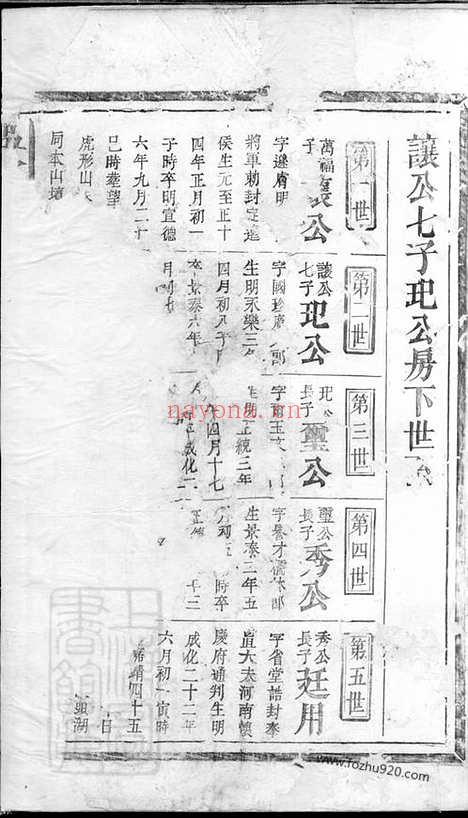 讓公七子玘公房下世
第一世
萬福子讓公
字遜膚明
將軍勅封定遠
侯生元至正十
四年正月初一
子時卒明宣德
六年九月二十
巳時葬望
虎形山
同本山墳
第二世
讓公七子玘公
字國珍
生明永樂三年
四月初八子
卒景泰六年
月初七
第三世
玘公長子璽公
字玉文
生明正統三年
四月十七
成化二
第四世
璽公長子秀公
字譽才儒林郎
生景泰二年五
初五
時卒
正德
十三
第五世
秀公長子廷用
字省堂誥封奉
直大夫河南懷
慶府通判生明
成化二十二年
六月初一寅時
嘉靖四十五
日
湖
nayona.cn
www.fozhu920.com